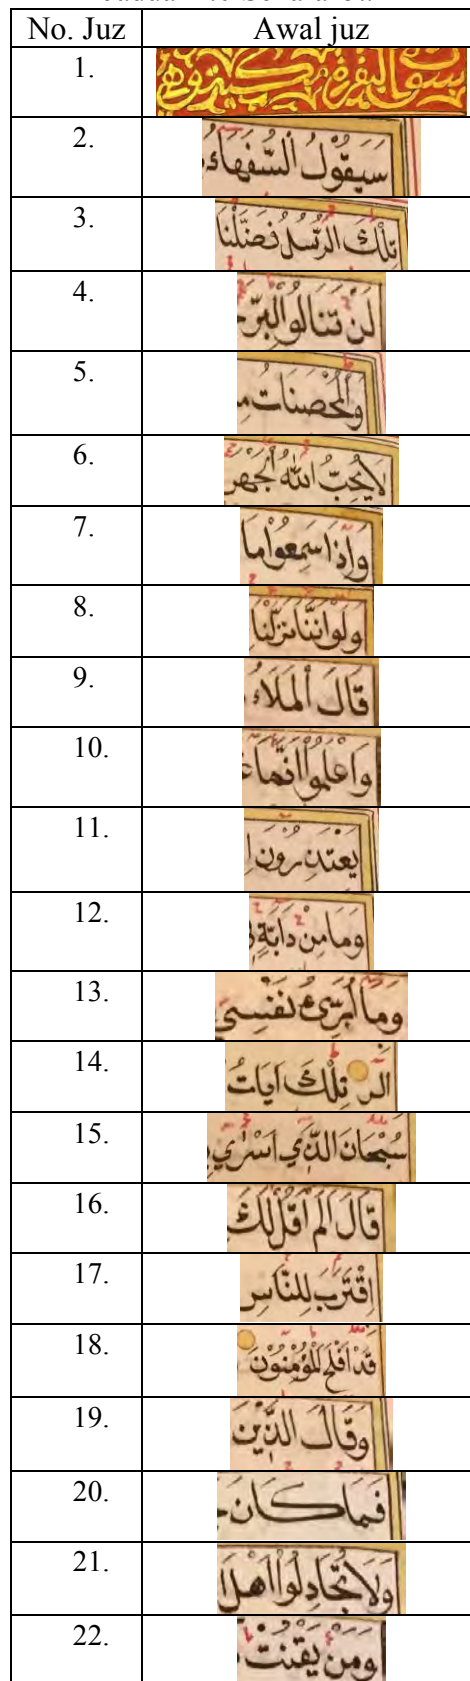 No. Juz Awal juz
1. سورة البقرة
2. سَيَقُوْلُ السُّفَهَاءُ
3. تِلْكَ الرُّسُلُ فَضَّلْنَا
4. لَنْ تَنَالُوا الْبِرَّ
5. وَالْمُحْصَنَاتُ
6. لَا يُحِبُّ اللهُ الْجَهْرَ
7. وَاِذَا سَمِعُوْا مَا
8. وَلَوْ اَنَّنَا نَزَّلْنَا
9. قَالَ الْمَلَاءُ
10. وَاعْلَمُوْا اَنَّمَا
11. يَعْتَذِرُوْنَ
12. وَمَا مِنْ دَابَّةٍ
13. وَمَا اُبَرِّئُ نَفْسِي
14. الٓر تِلْكَ اٰيَاتُ
15. سُبْحَانَ الَّذِي اَسْرٰي
16. قَالَ اَلَمْ اَقُلْ لَكَ
17. اِقْتَرَبَ لِلنَّاسِ
18. قَدْ اَفْلَحَ الْمُؤْمِنُوْنَ
19. وَقَالَ الَّذِيْنَ
20. فَمَا كَانَ
21. وَلَا تُجَادِلُوْا اَهْلَ
22. وَمَنْ يَقْنُتْ